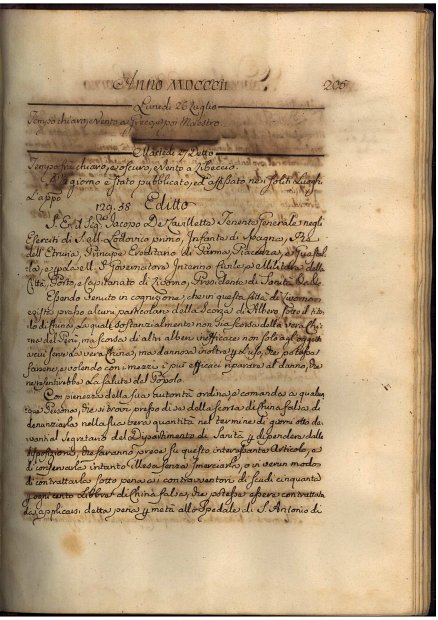 Anno MDCCCII
206
Lunedì 26 Luglio
Tempo chiaro, e Vento a Greco, poi Maestro.
Martedì 27 Detto
Tempo fra chiaro, e oscuro, e Vento a Libeccio.
giorno è stato pubblicato, ed affissato nei soliti Luoghi
L'appo
129.38 Editto
S. E. il Sig. Jacopo De Lavilletta Tenente Generale negli
Eserciti di S. M. Lodovico primo, Infante di Spagna, Re
dell'Etruria, Principe Ereditario di Parma, Piacenza, e Guastal-
la, e p. la M. S. Governatore Interino Civile, e Militare della
Città, Porto, e Capitanato di Livorno, Presidente di Sanità
Essendo venuto in cognizione, che in questa Città di Livorno
esista presso alcuni particolari della Scorza d'Albero sotto il tito-
lo di China, la quale sostanzialmente non sia scorza della vera Chi-
na del Perù, ma scorza di altri alberi inefficace non solo agl'oggetti
a cui serve la vera China, ma dannosa inoltre p. l'uso, che potesse
farsene, e volendo con i mezzi i più efficaci riparare al danno, che
ne risentirebbe la salute del Popolo.
Con pienezza della sua autorità ordina, e comanda a qualun-
que Persona, che si trovi presso di se della scorza di China falsa, di
denunziarla nella sua vera quantità nel termine di giorni otto da-
vanti al Segretario del Dipartimento di Sanità, e di pendere dalle
disposizioni, che saranno prese su questo interessante Articolo, e
di conservarla intanto illesa senza smerciarla, o in verun modo
di contrattarla sotto pena ai contravventori di scudi cinquanta
p. ogni cento Libbre di China falsa, che potesse essere contrattata
da applicarsi detta pena p. metà allo Spedale di S. Antonio di